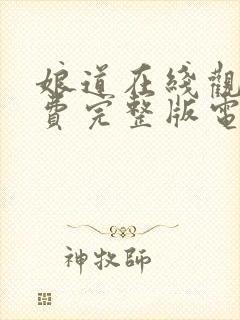 娘道在綫觀
費完整版電
神牧師